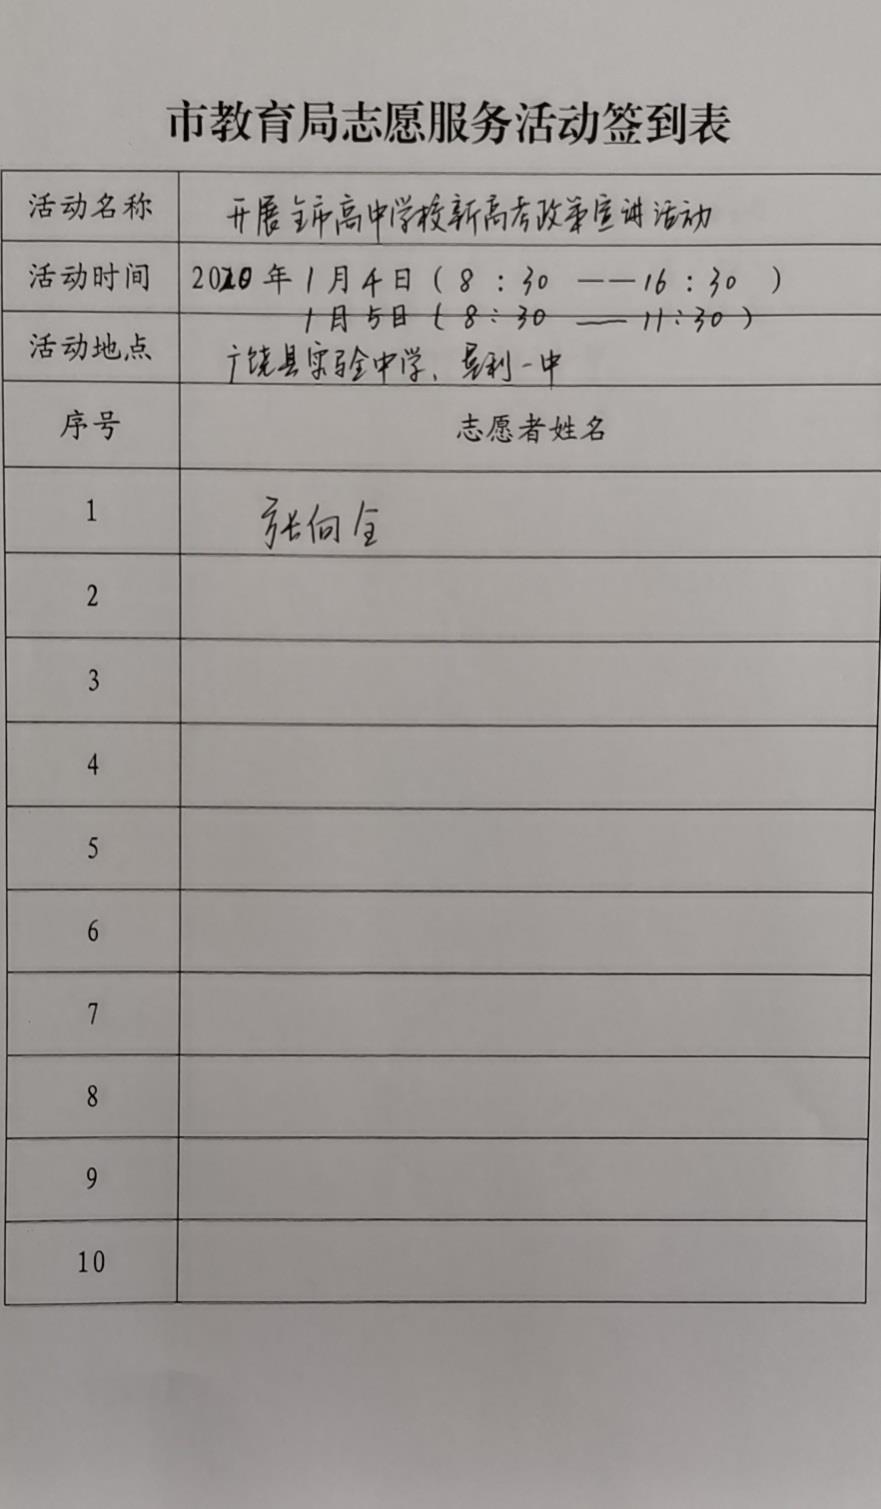 市教育局志愿服务活动签到表
活动名称 开展全市高中学校新高考政策宣讲活动
活动时间 2020年1月4日(8:30——16:30)
1月5日(8:30——11:30)
活动地点 广饶县实验中学、垦利一中
序号 志愿者姓名
1 张向全
2
3
4
5
6
7
8
9
10